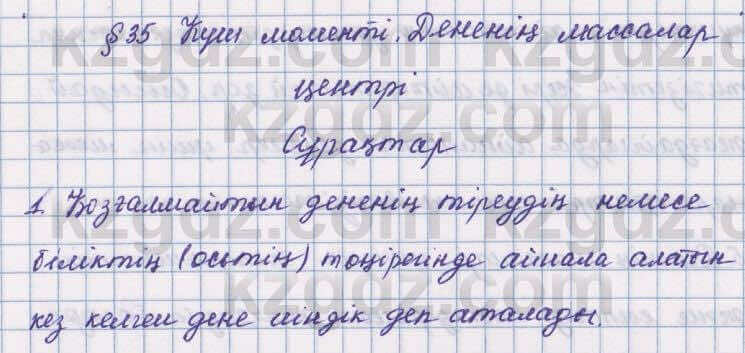 §35 Күш моменті. Дененің массалар
центрі
Сұрақтар
1. Қозғалмайтын дененің тіреудің немесе
біліктің (осьтің) төңірегінде айнала алатын
кез келген дене иіндік деп аталады.